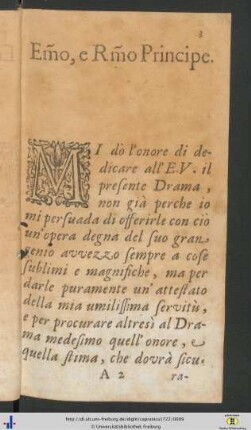 3
Em̃o, e Rm̃o Principe.
MI dò l'onore di de-
dicare all'E.V. il
presente Drama,
non già perche io
mi persuada di offerirle con ciò
un'opera degna del suo gran
genio avvezzo sempre a cose
sublimi e magnifiche, ma per
darle puramente un'attestato
della mia umilissima servitù,
e per procurare altresì al Dra-
ma medesimo quell'onore, e
quella stima, che dovrà sicu-
A 2
ra-
© Universitätsbibliothek Freiburg